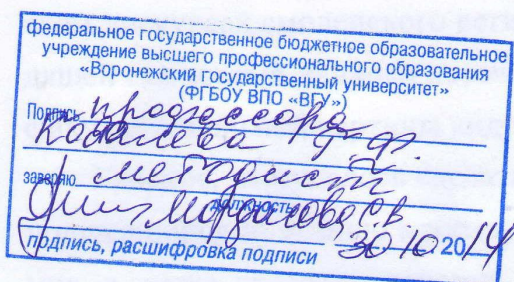 федеральное государственное бюджетное образовательное
учреждение высшего профессионального образования
«Воронежский государственный университет»
(ФГБОУ ВПО «ВГУ»)
Подпись профессора
Ковалева
заверяю методист
должность
30.10 2014
подпись, расшифровка подписи